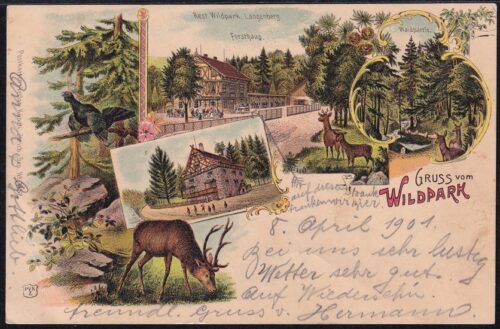 Rest. Wildpark, Langenberg
Forsthaus.
Waldpartie.
GRUSS vom
WILDPARK
8. April 1901.
Bei uns sehr lustig
Witter sehr gut
Auf Wiedersehn
freundl. Gruss v. Hermann